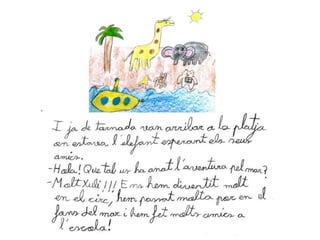 I ja de tornada van arribar a la platja
on estava l'elefant esperant els seus
amics.
-Hola! Que tal us ha anat l'aventura pel mar?
-Molt Xuli!!! Ens hem divertit molt
en el circ, hem passat molta por en el
fons del mar i hem fet molts amics a
l'escola!